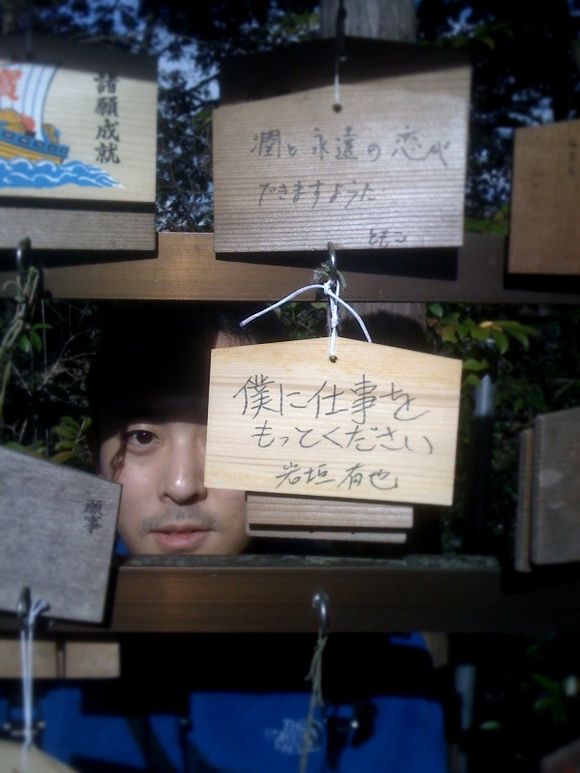 諸願成就
潤と永遠の恋が
できますように
ともこ
僕に仕事を
もってください
岩垣 有也
願事